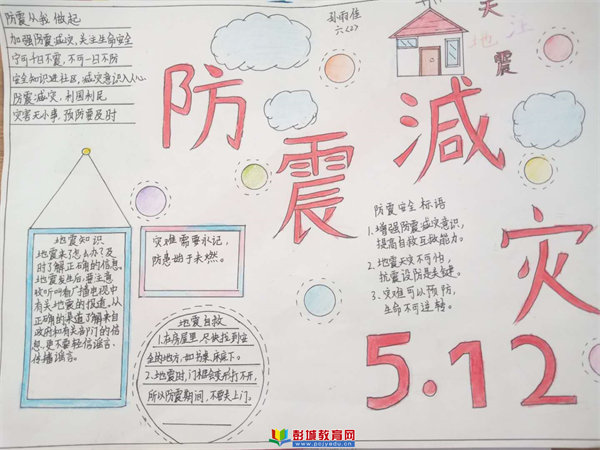 防震从我做起
加强防震减灾,关注生命安全
宁可千日不震,不可一日不防
安全知识进社区,减灾意识入人心
防震减灾,利国利民
灾害无小事,预防要及时
孙雨佳
六(2)
天
地
震
防震減灾
5.12
地震知识
地震来了怎么办?及
时了解正确的信息。
地震发生后,要注意
收听收看广播电视中
有关地震的报道,从
正确的渠道了解来自
政府和有关部门的信
息,更不要轻信谣言、
传播谣言。
灾难需要永记,
防患始于未燃。
地震自救
1.在房屋里,尽快找到安
全的地方,如书桌、床底下。
2.地震时,门框会变形打不开,
所以防震期间,不要关上门。
防震安全标语
1.增强防震减灾意识,
提高自救互救能力。
2.地震天灾不可怕,
抗震设防是关键。
3.灾难可以预防,
生命不可逆转。
彭城教育网
www.pcjyedu.cn